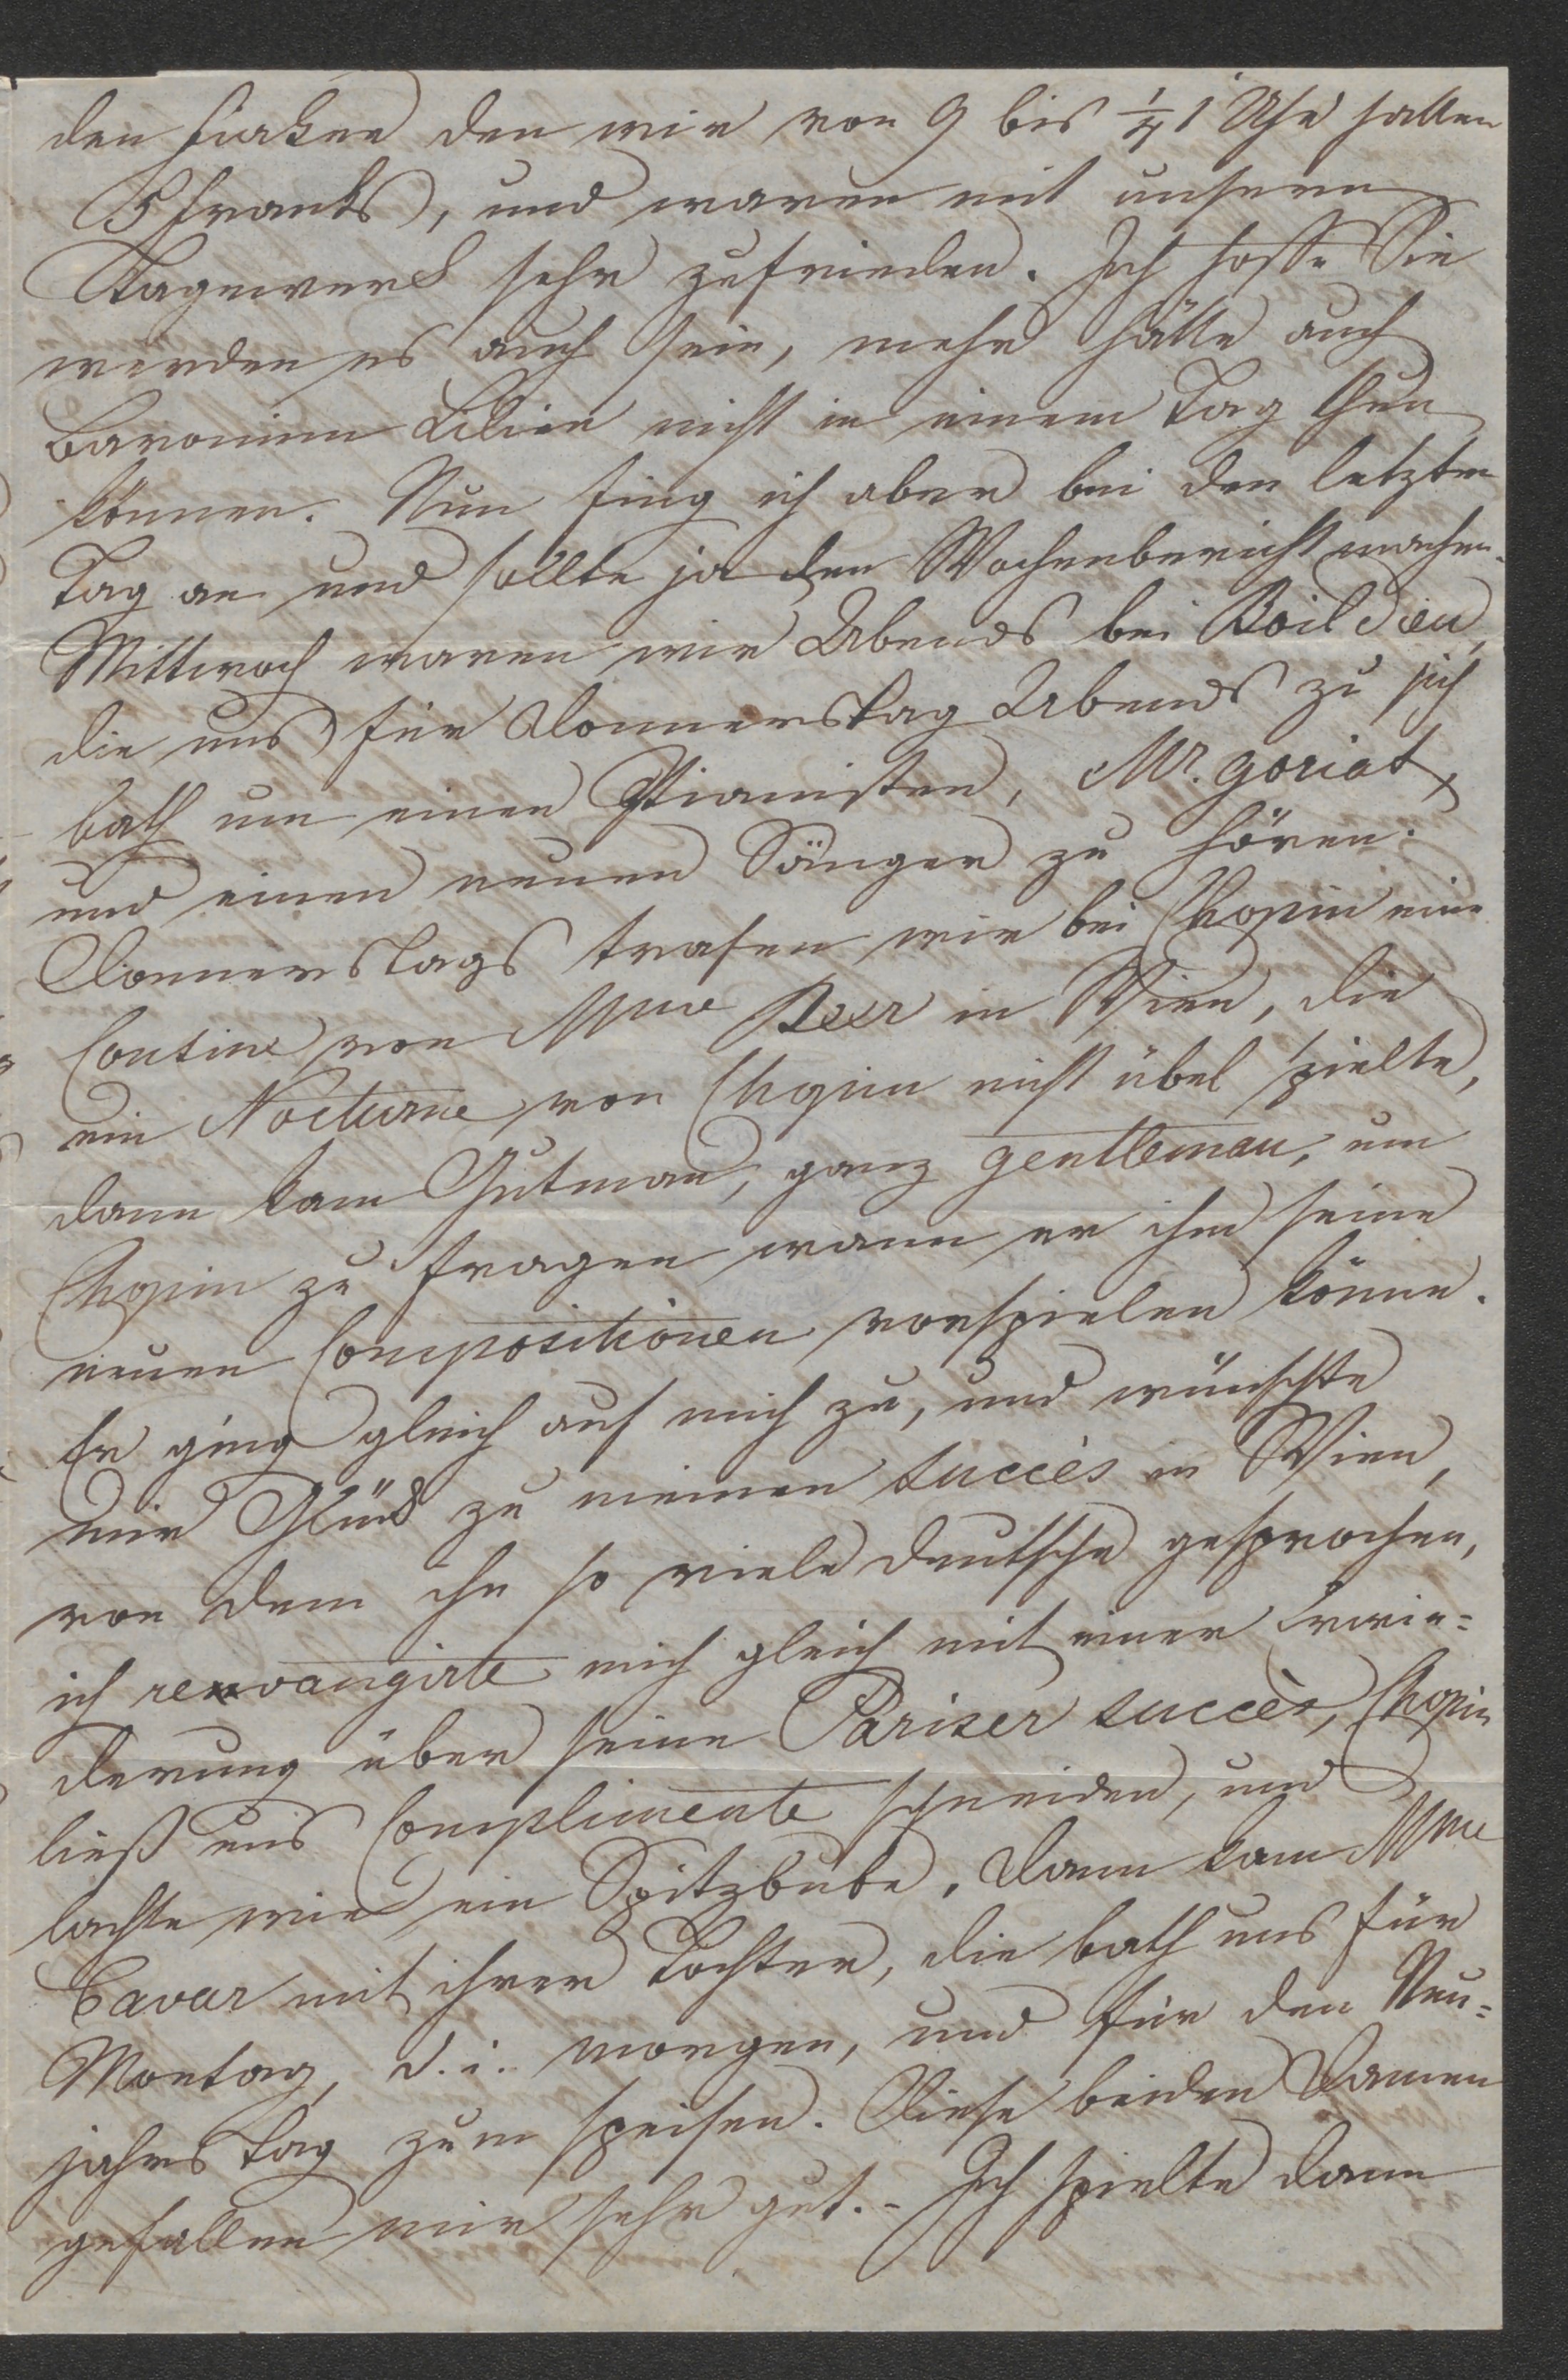 den Fiaker den wir von 9 bis ¼1 Uhr hatten
5 Franks), und waren mit unserm
Tagewerk sehr zufrieden. Ich hoffe Sie
werden es auch sein, mehr hätte auch
Baroninn Lilien nicht in einem Tag thun
können. Nun fing ich aber bei den letzten
Tag an und sollte ja den Wochenbericht machen.
Mittwoch waren wir Abends bei Boildieu,
die uns für Donnerstag Abends zu sich
bath um einen Pianisten, Mr. goriat,
und einen neuen Sänger zu hören.
Donnerstags trafen wir bei Chopin eine
Cousine von Mme Peer in Wien, die
ein Nocturne von Chopin nicht übel spielte,
dann kam Gutman, ganz gentleman, um
Chopin zu fragen wann er ihm seine
neuen Compositionen vorspielen könne.
Er ging gleich auf mich zu, und wünschte
mir Glück zu meinen succès in Wien,
von dem ihm so viele Deutsche gesprochen,
ich revangirte mich gleich mit einer Erwie=
derung über seine Pariser succès, Chopin
ließ uns Complimente schneiden, und
lachte wie ein Spitzbube. Dann kam Mme
Cavar mit ihrer Tochter, die bath uns für
Montag, d.i. morgen, und für den Neu=
jahrstag zum speisen. Diese beiden Damen
gefallen mir sehr gut. - Ich spielte dann